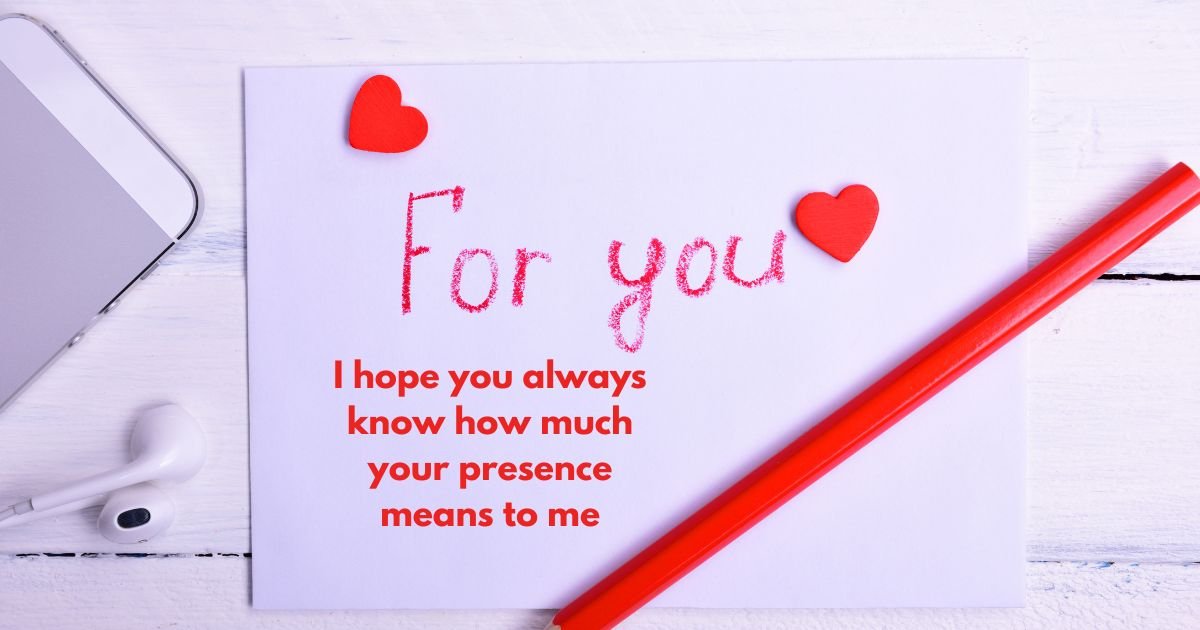 For you
I hope you always
know how much
your presence
means to me